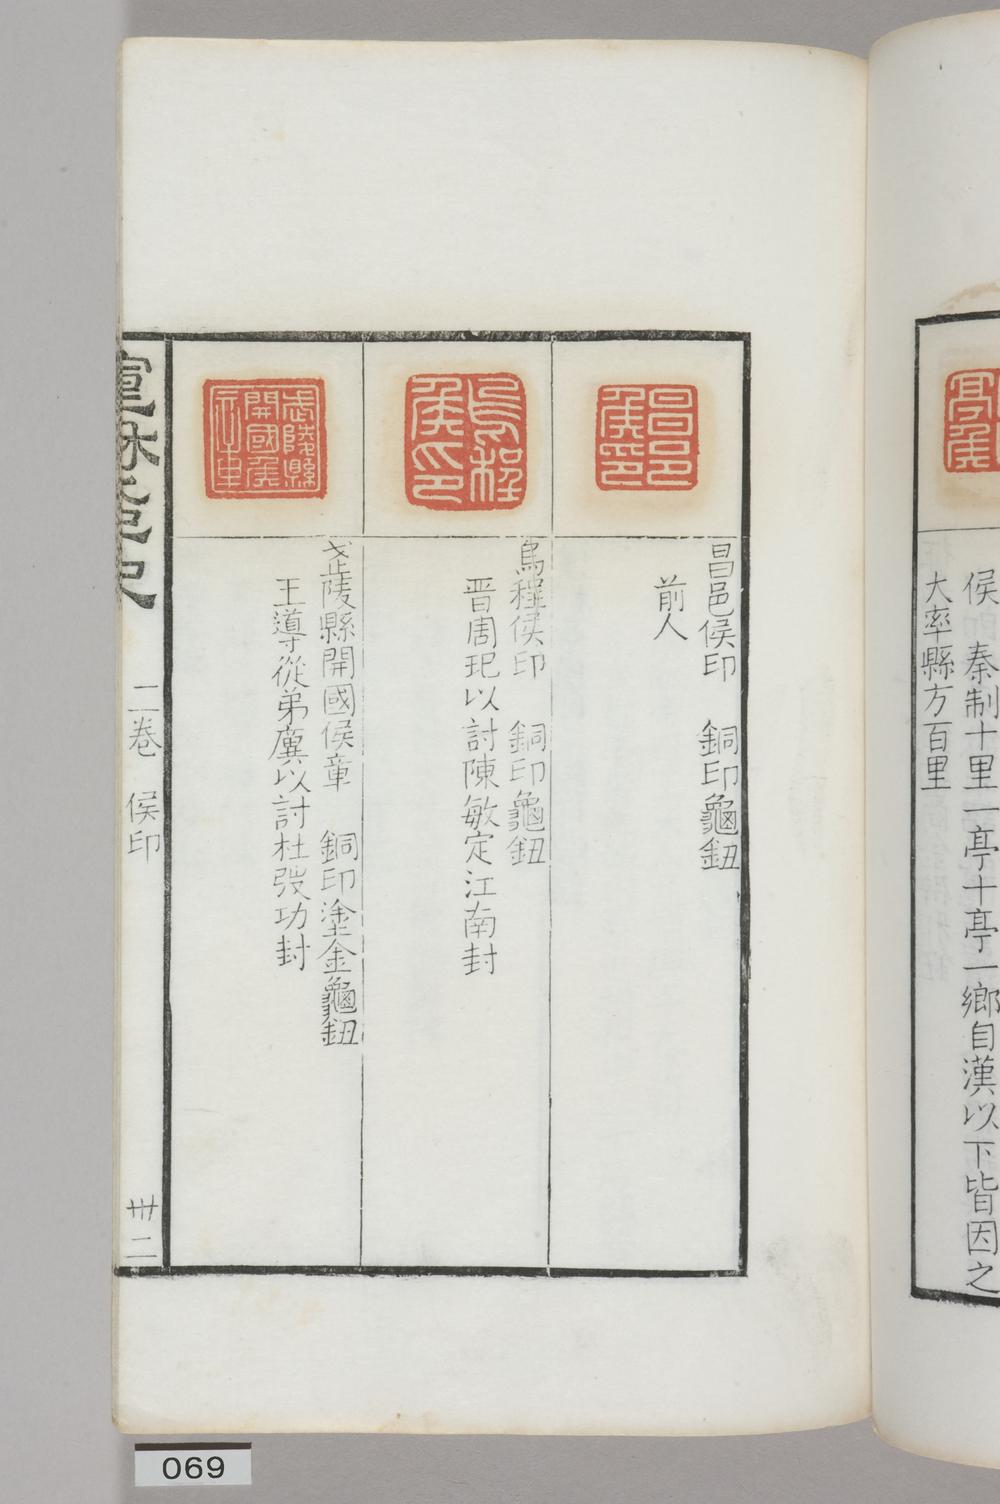 侯 秦制十里一亭十亭一鄉自漢以下皆因之
大率縣方百里
昌邑侯印
昌邑侯印 銅印龜鈕
前人
烏程侯印
烏程侯印 銅印龜鈕
晉周玘以討陳敏定江南封
武陵縣開國侯章
武陵縣開國侯章 銅印塗金龜鈕
王導從弟廙以討杜弢功封
二卷 侯印
卅二
069